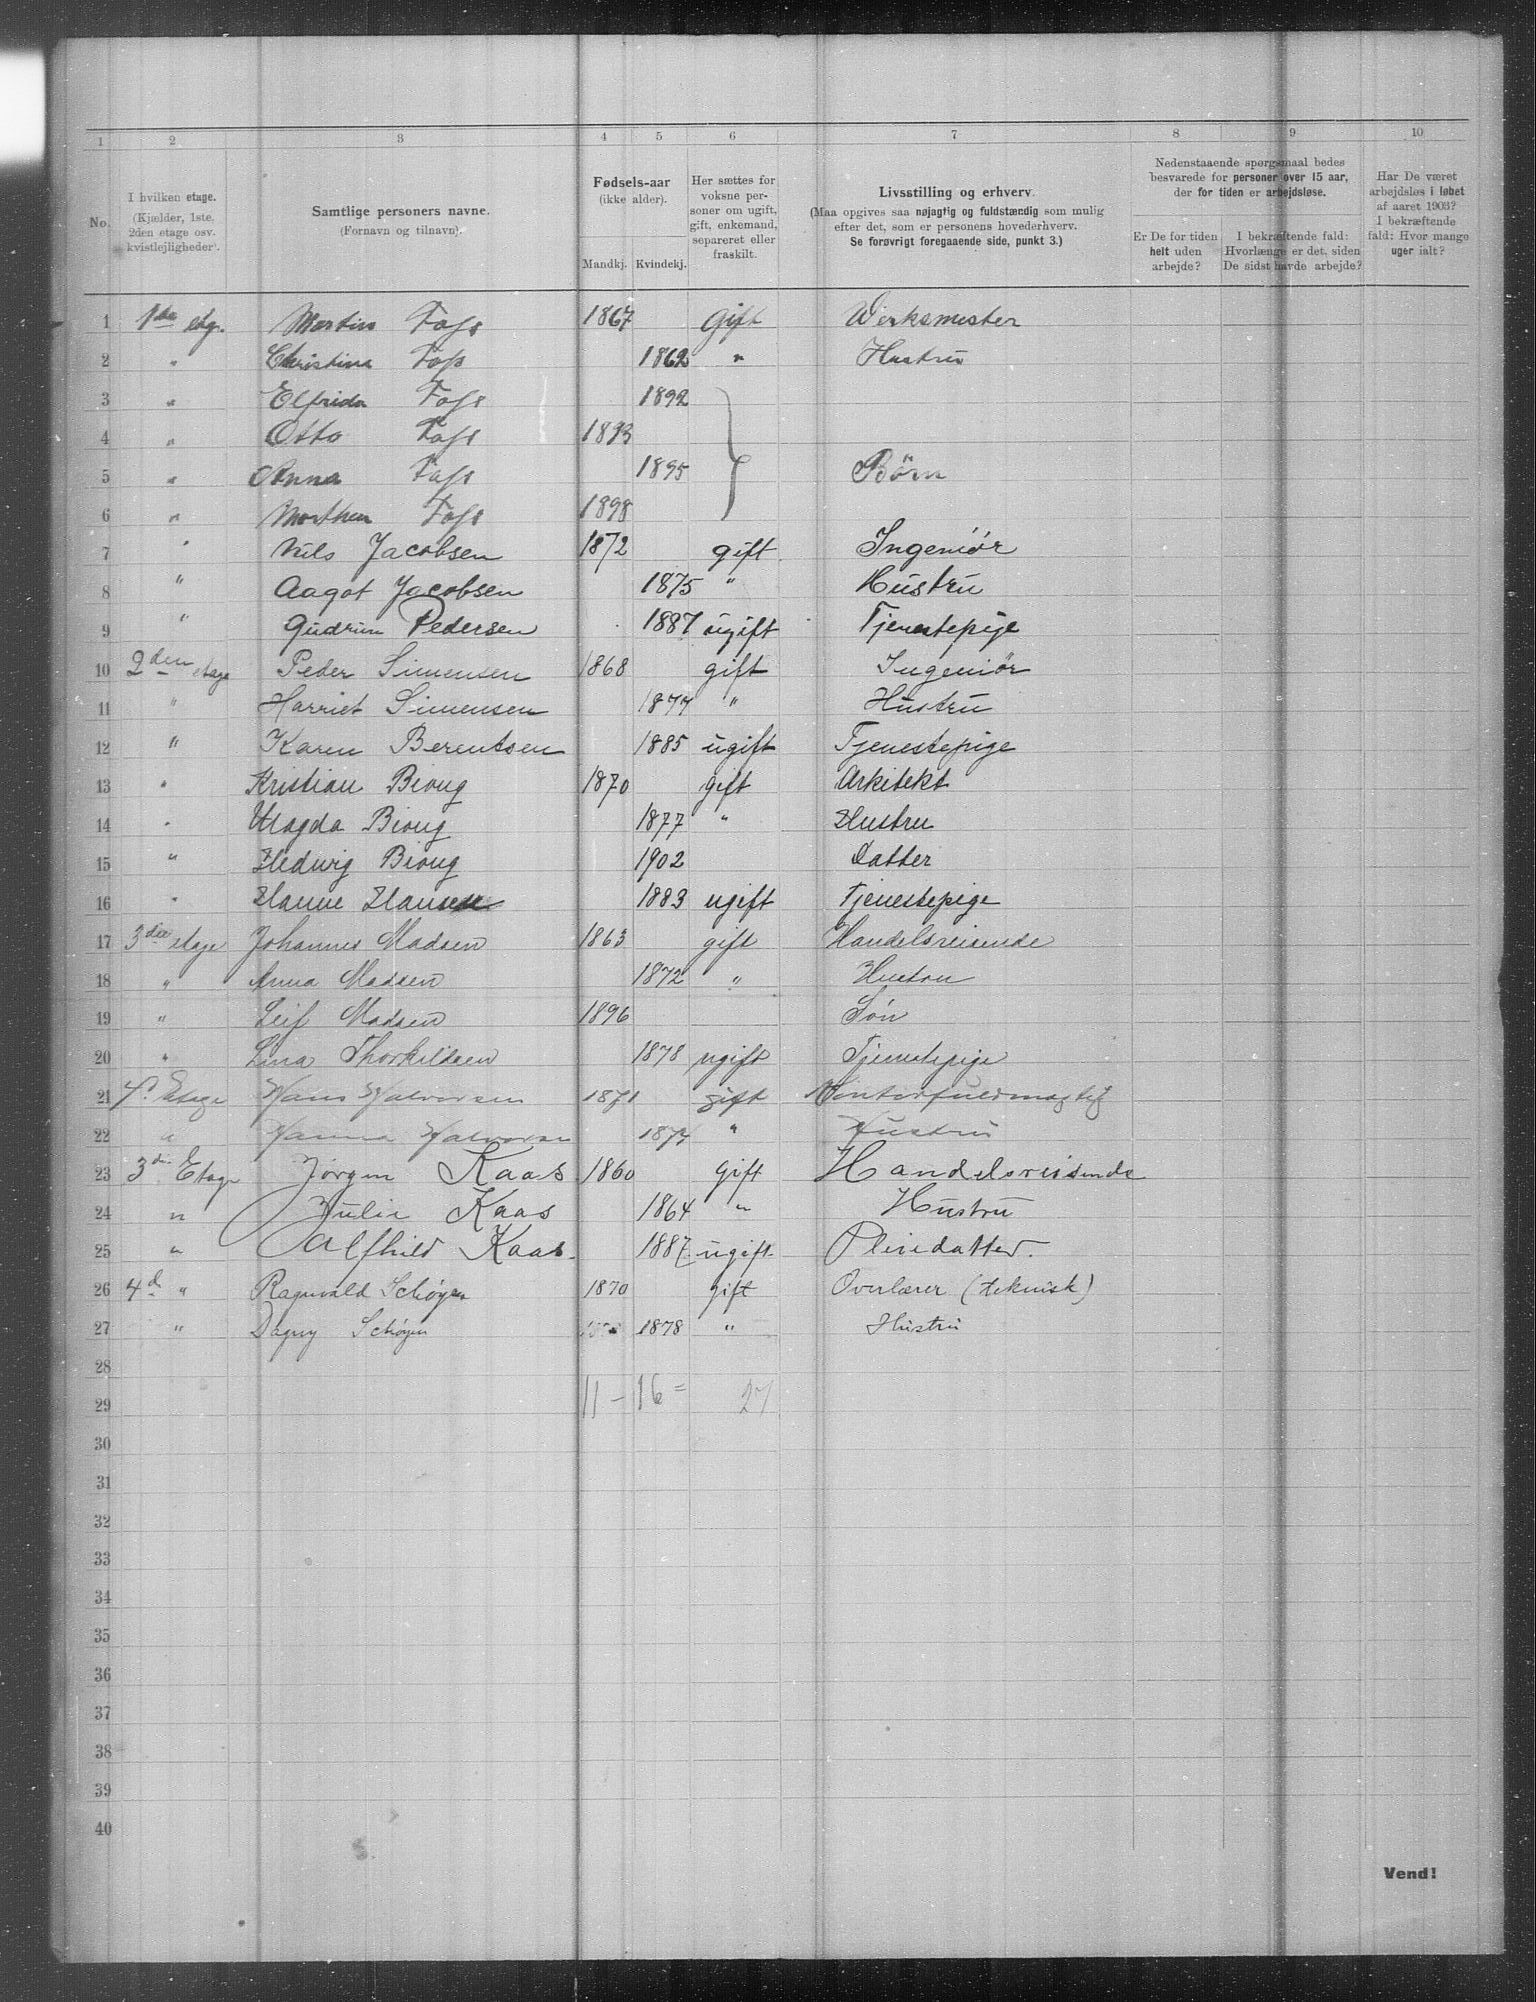 1 2 3 4 5 6 7 8 9 10
No. I hvilken etage. (Kjælder, 1ste, 2den etage osv. kvistleiligheder). Samtlige personers navne. (Fornavn og tilnavn). Fødsels-aar (ikke alder). Mandkj. Kvindekj. Her sættes for voksne personer om ugift, gift, enkemand, separeret eller fraskilt. Livsstilling og erhverv. (Maa opgives saa nøjagtig og fuldstændig som mulig efter det, som er personens hovederhverv. Se forøvrigt foregaaende side, punkt 3.) Nedenstaaende spørgsmaal bedes besvarede for personer over 15 aar, der for tiden er arbejdsløse. Er De for tiden helt uden arbejde? I bekræftende fald: Hvorlænge er det, siden De sidst havde arbejde? Har De været arbejdsløs i løbet af aaret 1903? I bekræftende fald: Hvor mange uger ialt?
1 1ste etg. Martin Foss 1867 gift Værksmester
2 " Christina Foss 1862 " Hustru
3 " Elfrida Foss 1892
4 " Otto Foss 1893
5 " Anna Foss 1895 Børn
6 " Morthen Foss 1898
7 " Nils Jacobsen 1872 gift Ingeniør
8 " Aagot Jacobsen 1875 " Hustru
9 " Gudrun Pedersen 1887 ugift Tjenestepige
10 2den etage Peder Simensen 1868 gift Ingeniør
11 " Harriet Simensen 1877 " Hustru
12 " Karen Berentsen 1885 ugift Tjenestepige
13 " Kristian Biong 1870 gift Arkitekt
14 " Magda Biong 1877 " Hustru
15 " Hedwig Biong 1902 Datter
16 " Hanne Hansen 1883 ugift Tjenestepige
17 3die etage Johannes Madsen 1863 gift Handelsreisende
18 " Anna Madsen 1872 " Hustru
19 " Leif Madsen 1896 Søn
20 " Lina Thorkildsen 1878 ugift Tjenestepige
21 4. Etage Hans Halvorsen 1871 gift Kontorfuldmægtig
22 " Hanna Halvorsen 1877 " Hustru
23 3die Etage Jørgen Kaas 1860 gift Handelsreisende
24 " Julie Kaas 1864 " Hustru
25 " Alfhild Kaas 1887 ugift Pleiedatter.
26 4d " Ragnvald Schøyen 1870 gift Overlærer (teknisk)
27 " Dagny Schøyen 1878 " Hustru
28
29 11 - 16 = 27
30
31
32
33
34
35
36
37
38
39
40
Vend!